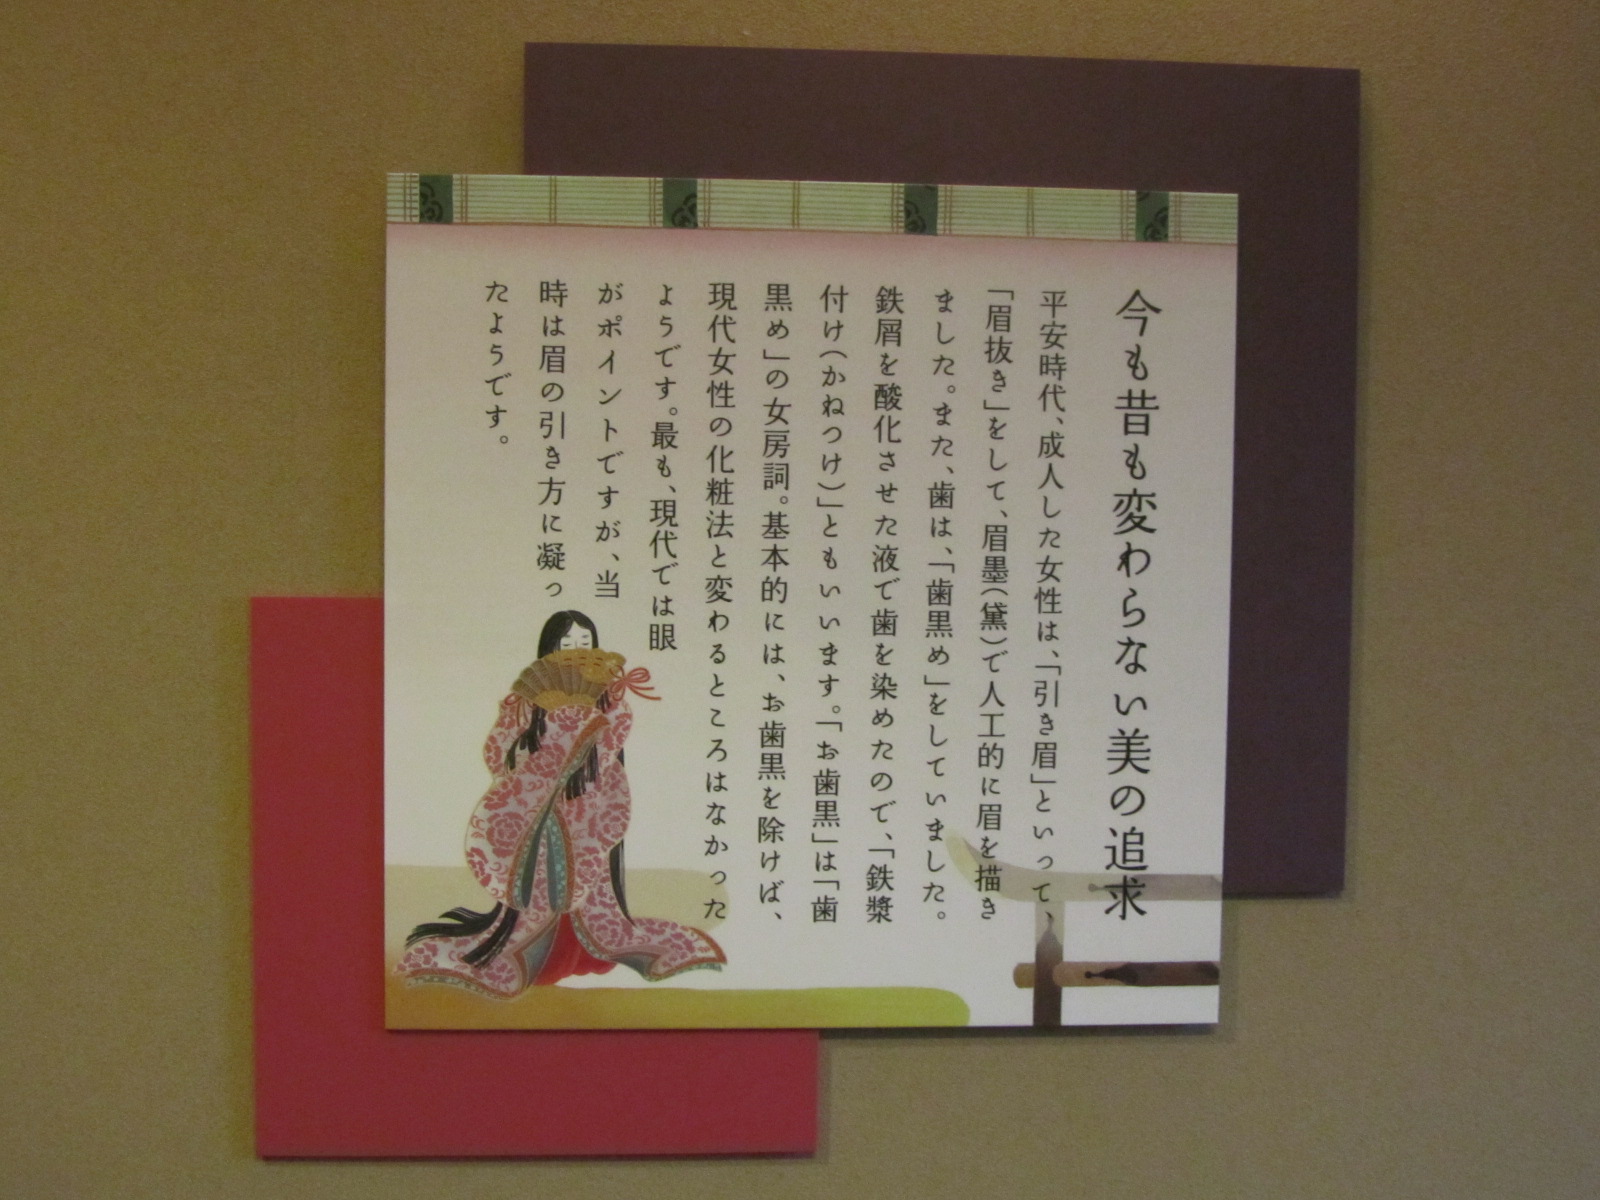 今も昔も変わらない美の追求
平安時代、成人した女性は、「引き眉」といって、
「眉抜き」をして、眉墨(黛)で人工的に眉を描き
ました。また、歯は、「歯黒め」をしていました。
鉄屑を酸化させた液で歯を染めたので、「鉄漿
付け(かねつけ)」ともいいます。「お歯黒」は「歯
黒め」の女房詞。基本的には、お歯黒を除けば、
現代女性の化粧法と変わるところはなかった
ようです。最も、現代では眼
がポイントですが、当
時は眉の引き方に凝っ
たようです。